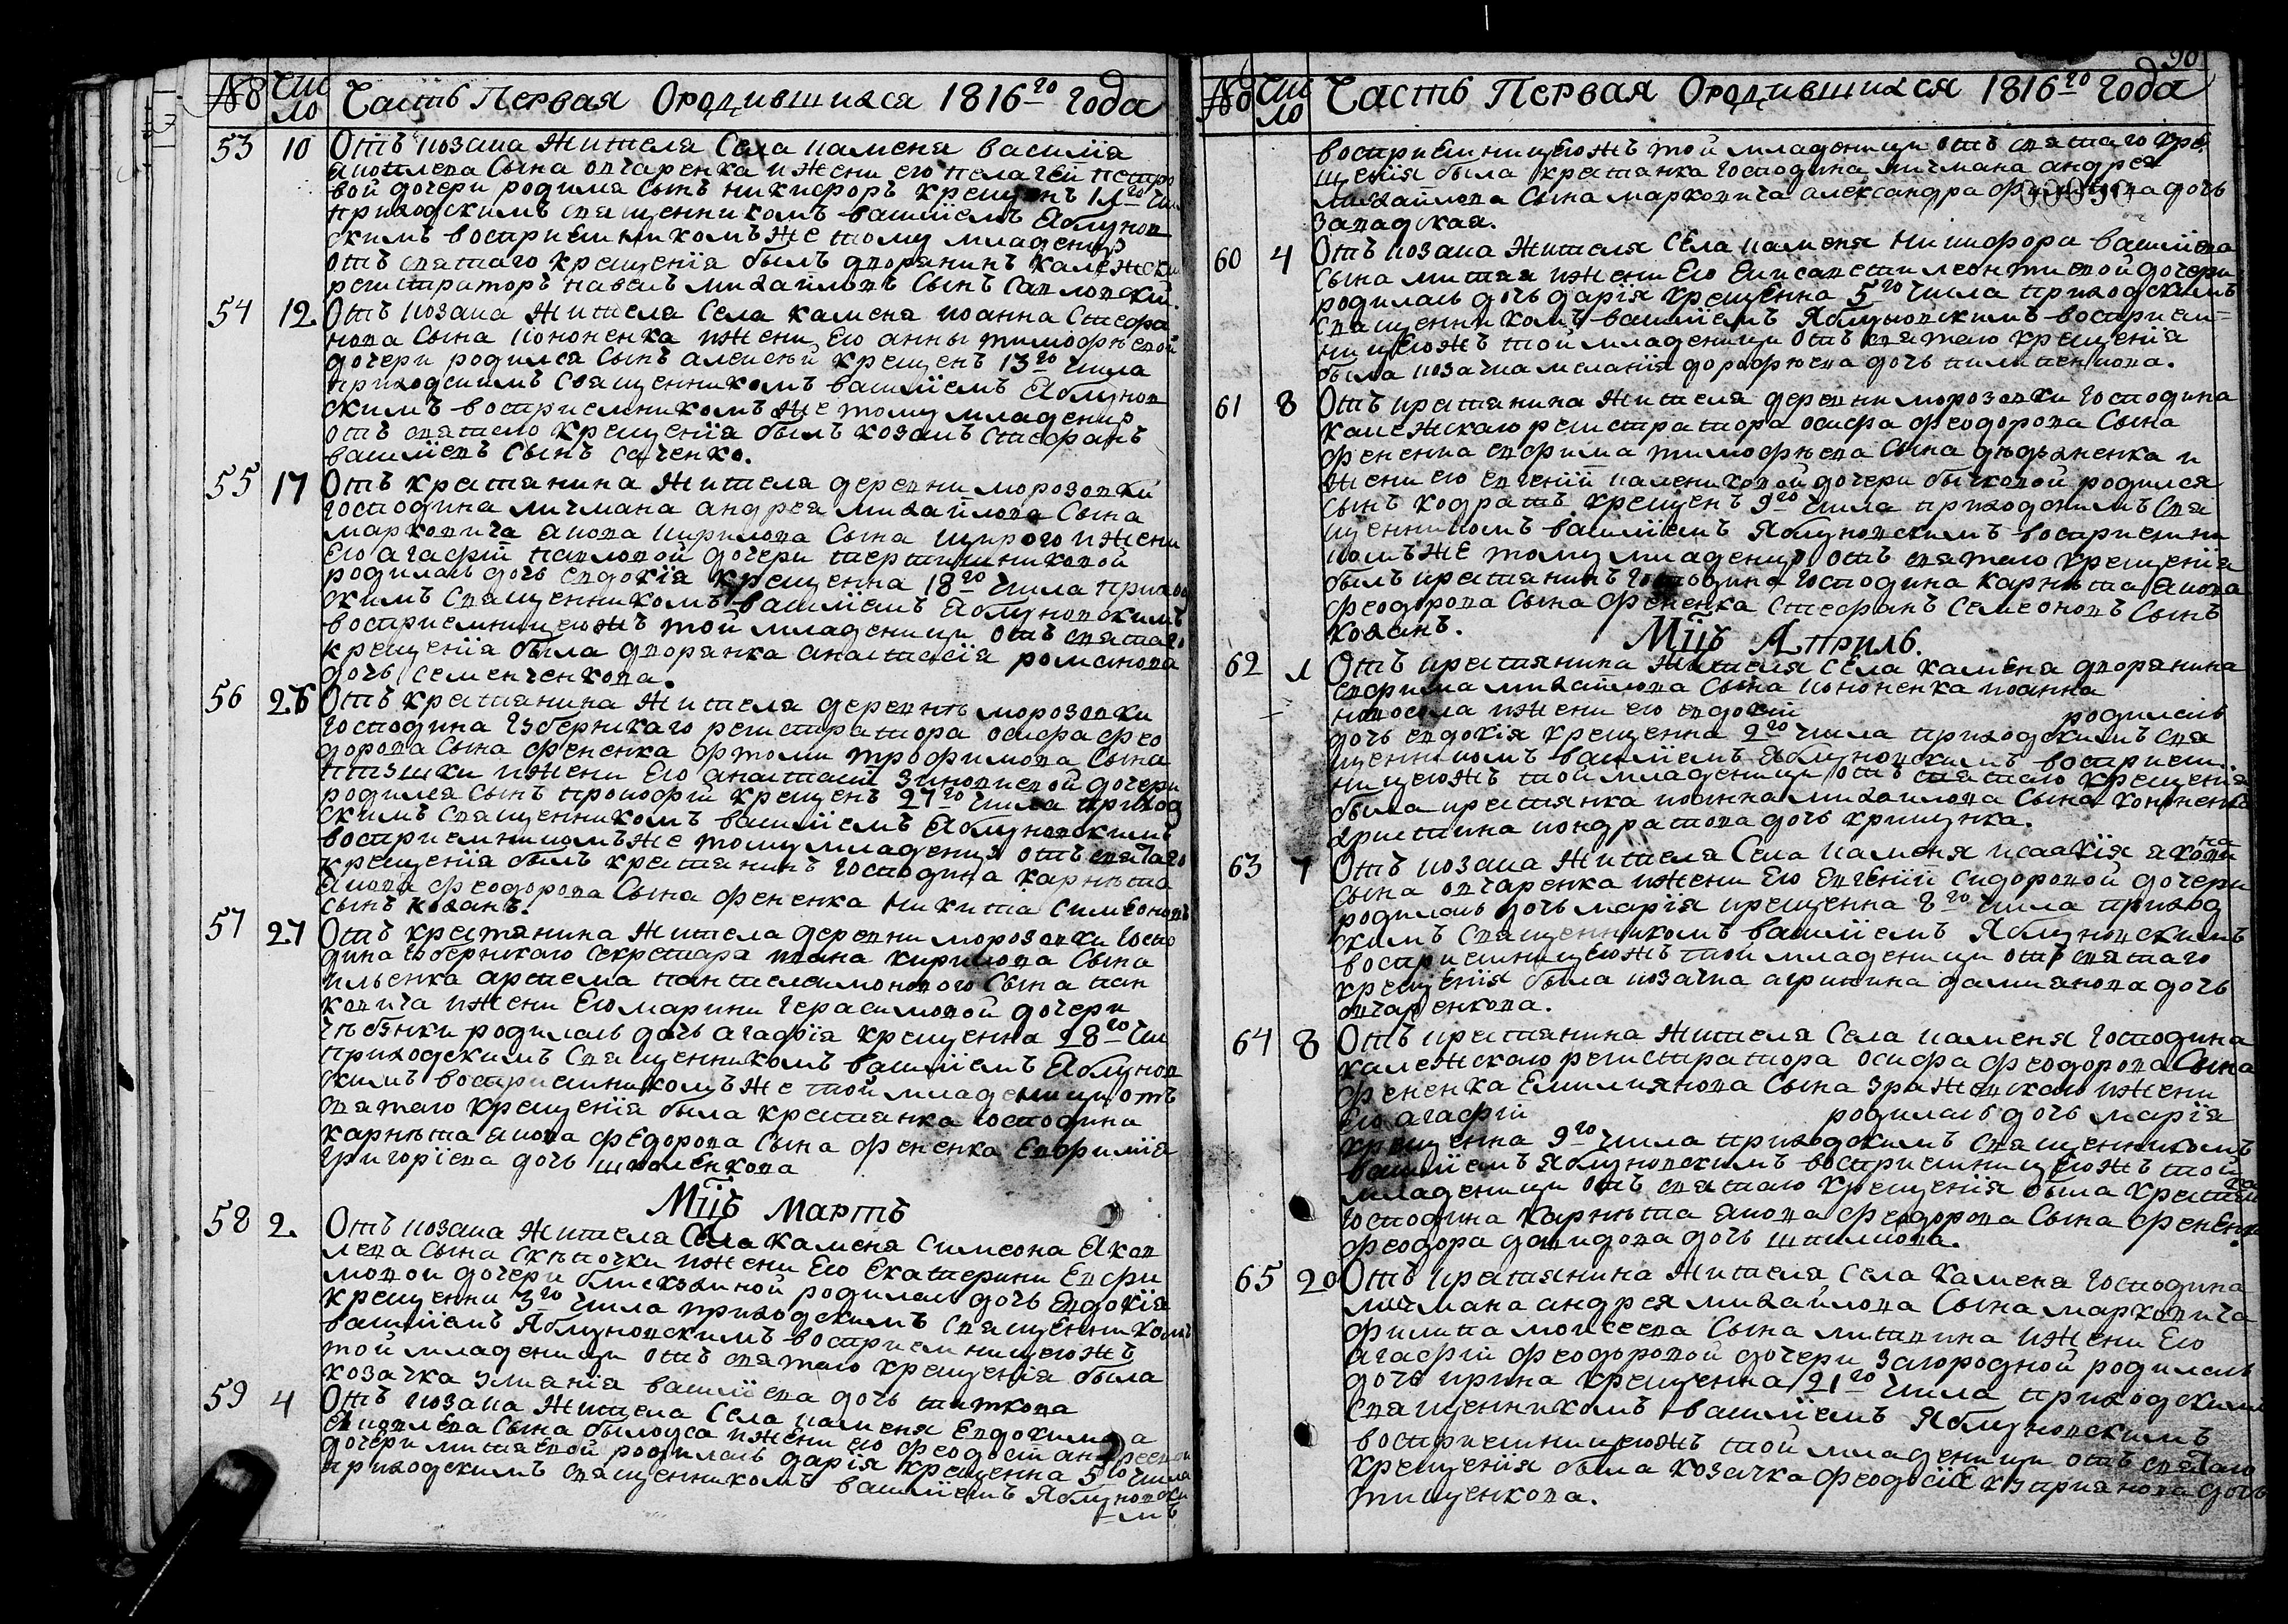 № Число Часть Первая Ородившихся 1816го года
53 10 Отъ козака жителя Села каменя василія
яковлева Сына овчаренка ижени его пелагеи петро
вой дочери родился Сынъ никифоръ крещенъ 11го чи
приходскимъ священникомъ василіемъ Яблунов
скимъ восприемникомъ же тому младенцу
отъ святаго крещенія былъ дворянинъ калежски
регистраторъ павелъ михайловъ Сынъ Савловский.
54 12 Отъ козака жителя Села каменя иоанна Стефа
нова Сына кононенка ижени Его анны тимофѣевой
дочери родился Сынъ алексѣй крещенъ 13го числа
приходскимъ священникомъ василіемъ Яблунов
скимъ восприемникомъ же тому младенцу
отъ святаго крещенія былъ козакъ Стефанъ
василіевъ Сынъ саченко.
55 17 Отъ крестянина жителя деревни морозовки
господина мичмана андрея михайлова Сына
марковича якова кирилова Сына щирого ижени
Его агафіи павловой дочери
родилась дочь евдокія крещенна 18го числа приход
скимъ священникомъ василіемъ Яблуновскимъ
восприемницеюжъ той младеници отъ святаго
крещенія была дворянка анастасія романова
дочь Семенченкова.
56 26 Отъ крестянина жителя деревнѣ морозовки
господина губернскаго регистратора осифа фео
дорова Сына фененка фтоми трофимова Сына
ижени Его анастасіи зиновиевой дочери
родился Сынъ прокофій крещенъ 27го числа приход
скимъ священникомъ василіемъ Яблуновскимъ
восприемникомъже тому младенцу отъ святаго
крещенія былъ крестянинъ господина карнѣта
якова феодорова Сына фененка никита симеоновъ
сынъ коханъ.
57 27 Отъ крестянина жителя деревни морозовки госпо
дина губернскаго секретара ивана кирилова Сына
ильенка артема пантелеимонового Сына пан
ковича ижени Его марини герасимовой дочери
родилась дочь агафія крещенна 28го чи
приходскимъ священникомъ василіемъ Яблунов
скимъ восприемникомъ же той младеници отъ
святаго крещенія была крестянка господина
карнѣта якова федорова Сына фененка Евфимія
григоріева дочь школенкова
Мцъ Мартъ
58 2. Отъ козака жителя Села каменя Симеона Яков
лева Сына скѣпочки ижени Его Екатерини Евфи
мовой дочери родилась дочь Евдокія
крещенни 3го числа приходскимъ священникомъ
василіемъ Яблуновскимъ восприемницеюжъ
той младеници отъ святаго крещенія была
козачка улианія василіева дочь титкова
59 4 Отъ козака жителя Села каменя Евдокима
яковлева Сына былоуса ижени его феодосіи андреевой
дочери митяевой родилась дарія крещенна 5го числа
приходскимъ священникомъ василіемъ Яблуновски
мъ
90
№ Число Часть Первая Ородившихся 1816го года
восприемницеюжъ той младеници отъ святаго кре
щенія была крестянка господина мичмана андрея
михайлова Сына марковича александра филипова дочь
западская.
00090
60 4 Отъ козака жителя Села каменя никифора василіева
Сына митяя ижени Его Елисавети леонтиевой дочери
родилась дочь дарія крещенна 5го числа приходскимъ
священникомъ василіемъ Яблуновскимъ восприем
ницеюжъ той младеници отъ святаго крещенія
была козачка меланія дорофѣева дочь пилипенкова.
61 8 Отъ крестянина жителя деревни морозовки господина
калежскаго регистратора осифа феодорова Сына
фененка евфима тимофѣева Сына
жени его евгеніи дочери бычковой родился
сынъ кодратъ крещенъ 9го числа приходскимъ свя
щенникомъ василіемъ Яблуновскимъ восприемни
комъже тому младенцу отъ святаго крещенія
былъ крестянинъ господина карнѣта якова
феодорова Сына фененка Стефанъ Семеоновъ Сынъ
коханъ.
Мцъ Априль.
62 1 Отъ крестянина жителя Села каменя дворянина
евфима михайлова Сына кононенка иоанна
новосела ижени его евдокіи родилась
дочь евдокія крещенна 2го числа приходскимъ свя
щенникомъ василіемъ Яблуновскимъ восприем
ницеюжъ той младеници отъ святаго крещенія
была крестянка иоанна михайлова Сына кононенка
христина кондратова дочь
63 7 Отъ козака жителя Села каменя исаакія якова
Сына овчаренка ижени Его Евгеніи сидоровой дочери
родилась дочь марія крещенна 8го числа приход
скимъ Священникомъ василіемъ Яблуновскимъ
восприемницеюжъ той младеници отъ святаго
крещенія была козачка агрипина дамианова дочь
овчаренкова.
64 8 Отъ крестянина жителя Села каменя господина
калежскаго регистратора осифа феодорова Сына
фененка Емилиянова Сына зражевскаго ижени
Его агафіи родилась дочь марія
крещенна 9го числа приходскимъ священникомъ
василіемъ Яблуновскимъ восприемницеюжъ той
младеници отъ святаго крещенія была крестянка
господина карнѣта якова феодорова Сына фененка
феодора давидова дочь
65 20 Отъ крестянина жителя Села каменя господина
мичмана андрея михайлова Сына марковича
филипа моисеева Сына литвина ижени Его
агафіи феодоровой дочери загородной родилась
дочь ирина крещенна 21го числа приходскимъ
священникомъ василіемъ Яблуновскимъ
восприемницеюжъ той младеници отъ святаго
крещенія была козачка феодосія куприянова дочь
тищенкова.